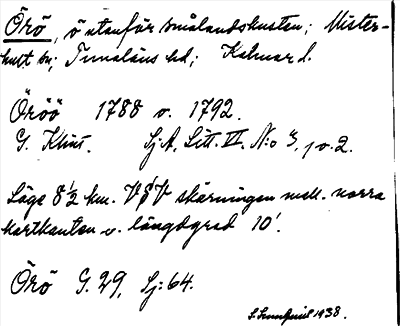 Örö, ö utanför smålandskusten; Mister-
hult sn; Tunaläns hd; Kalmar l.
Öröö 1788 o. 1792.
G. Klint. Sj.A, Litt. VI. N:o 3, 1 o. 2.
Läge 8½ km. VSV skärningen mell. norra
kartkanten o. längdgrad 10'.
Örö G. 29, Sj: 64.
1938.